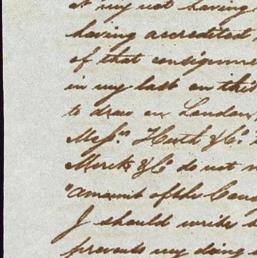 at my not having
having accredited
of that consignme
in my last on this
to draw on London,
Messrs. Huth & Co.
Merck & Co do not
"amount of the Con
I should write
prevents my doing